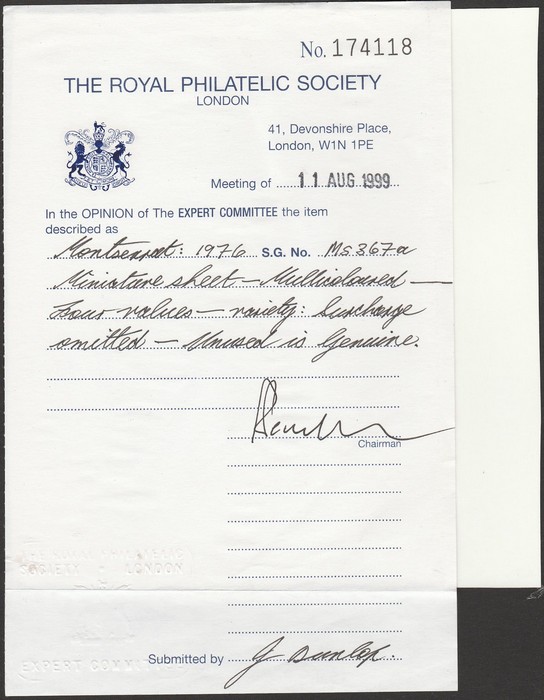 No. 174118
THE ROYAL PHILATELIC SOCIETY
LONDON
41, Devonshire Place,
London, W1N 1PE
Meeting of 11 AUG 1999
In the OPINION of The EXPERT COMMITTEE the item
described as
Montserrat: 1976 S.G. No. MS367a
Miniature sheet – Multicoloured –
Four values – variety: Surcharge
omitted – Unused is Genuine.
Chairman
SOCIETY LONDON
EXPERT COMMITTEE
Submitted by J Dunlop.